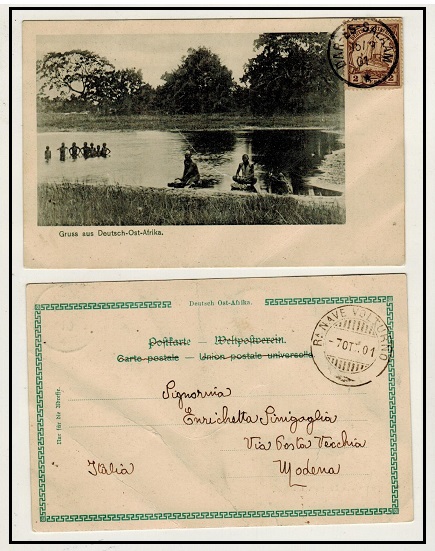 DAR-ES-SALAAM
01
2
Gruss aus Deutsch-Ost-Afrika.
Deutsch Ost-Afrika.
Postkarte — Weltpostverein.
Carte postale — Union postale universelle
Ra NAVE VOLTURNO
-7 OTT. 01
Nur für die Adresse.
Signorina
Enrichetta Sinigaglia
Via Posta Vecchia
Italia
Modena